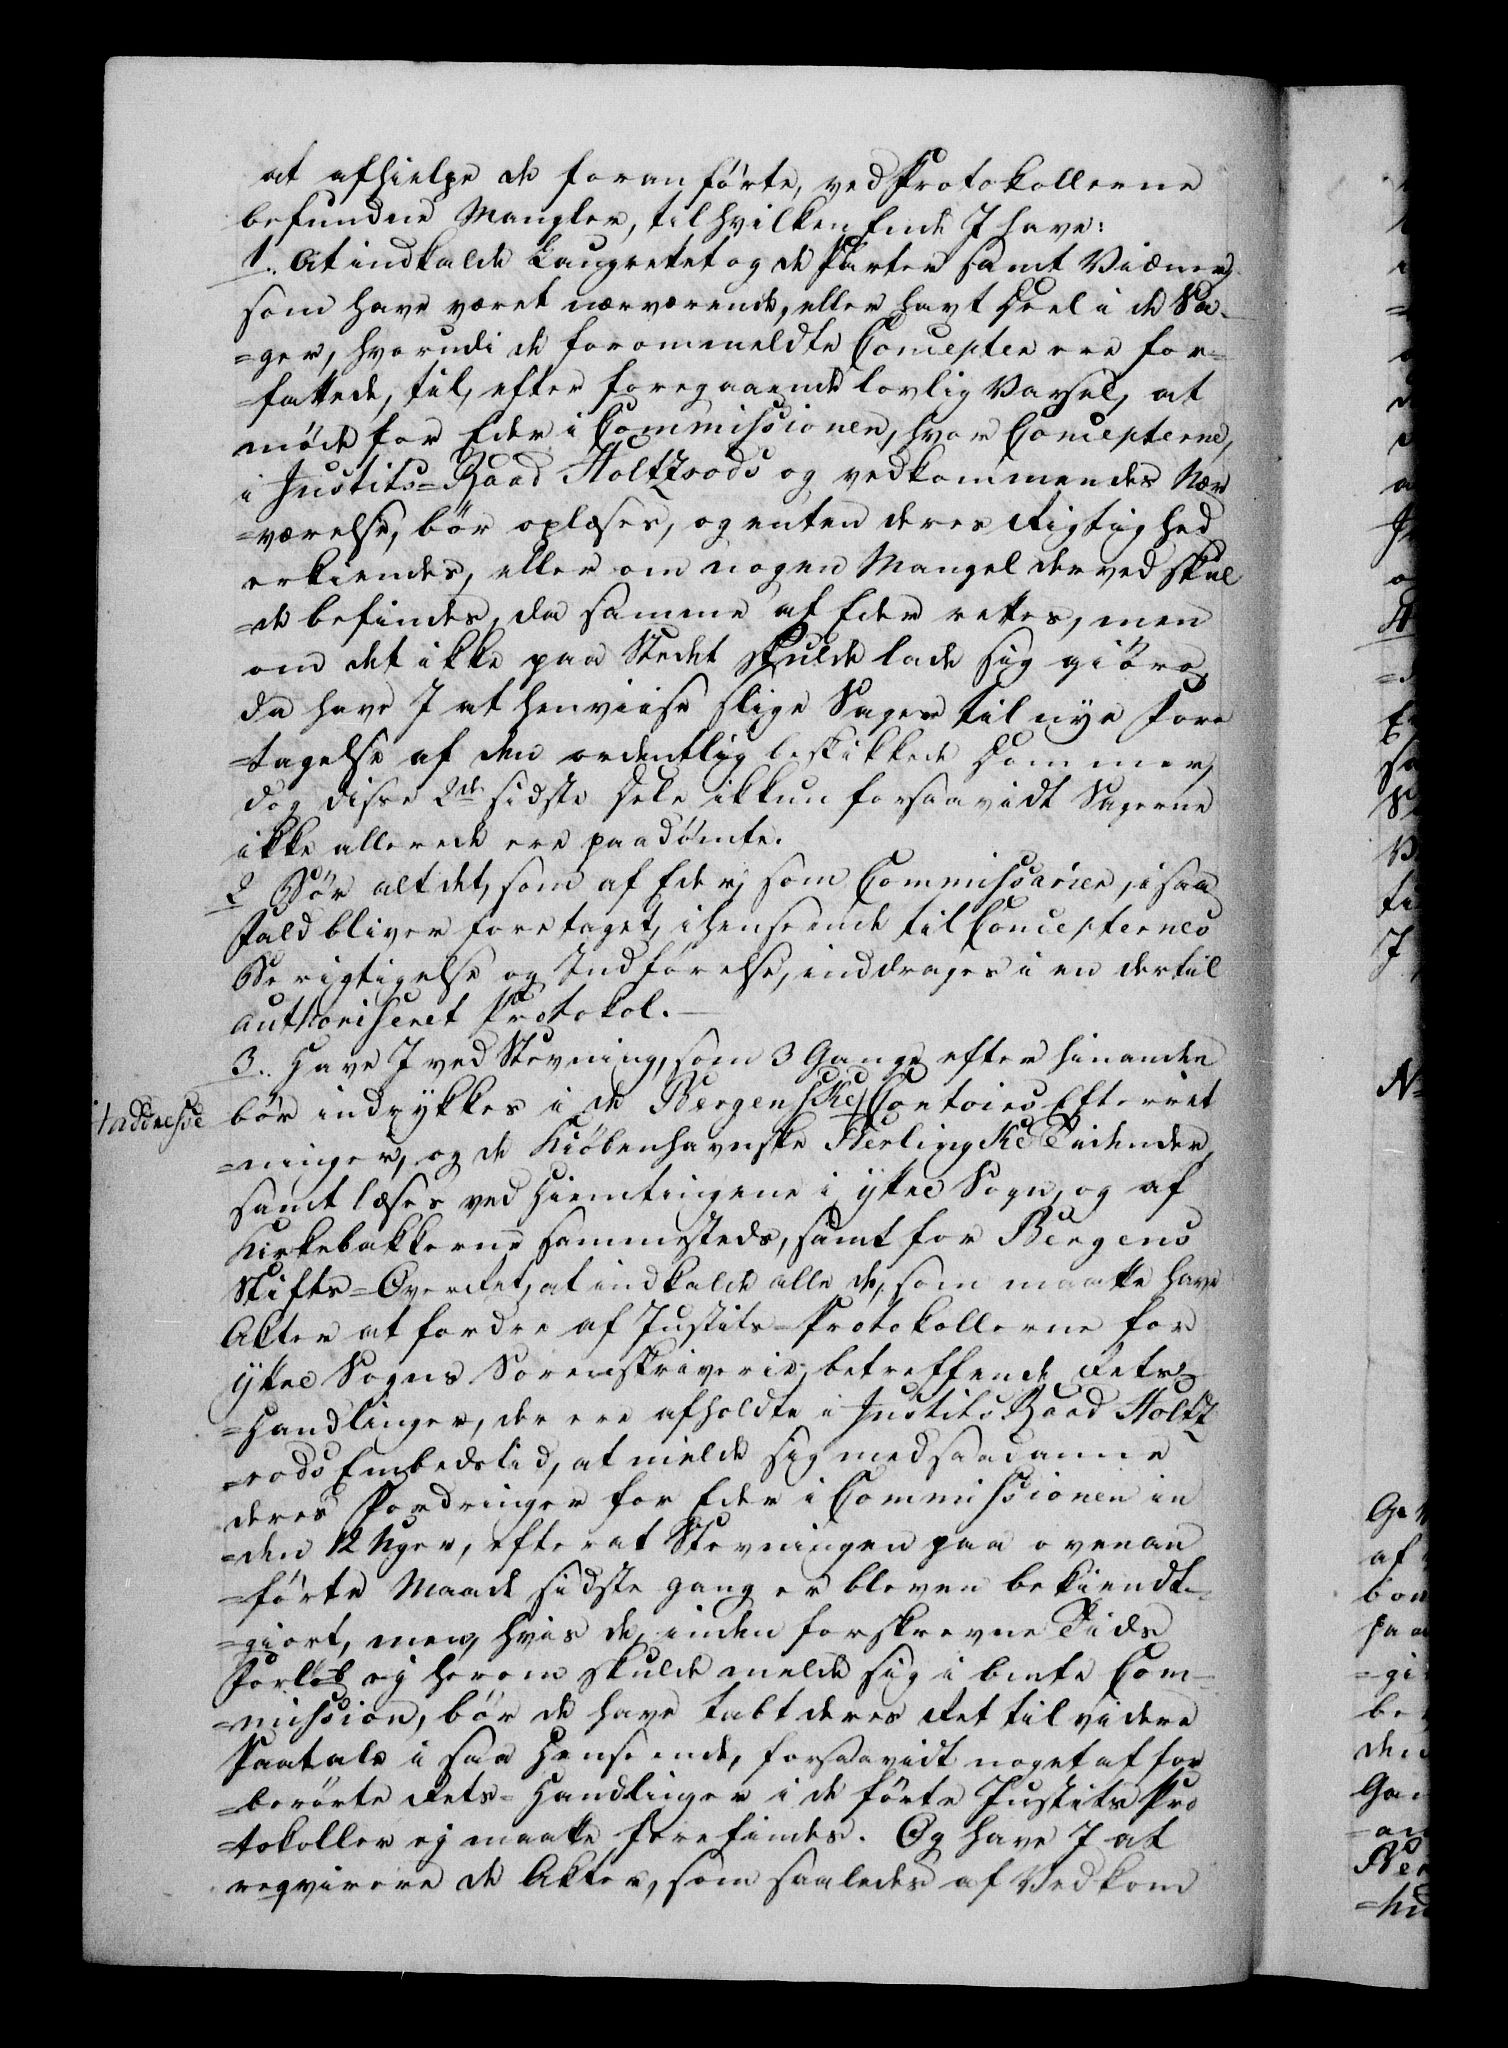 at afhielpe de foranførte, ved Protokollerne
befundne Mangler, til hvilken Ende I have:
1. At indkalde Laugrettet og de Parter samt Vidner,
som have været nærværende, eller havt Deel i de Sa-
=ger, hvorudi de forommeldte Concepter ere for-
=fattede, til, efter foregaaende lovlig Varsel, at
møde for Eder i Commissionen, hvor Concepterne,
i Justits=Raad Holtzrods og vedkommendes Nær
=værelse, bør oplæses, og enten deres Rigtighed
erkiendes, eller om nogen Mangel derved skul
=de befindes, da samme af Eder rettes, men
om det ikke paa Stedet skulde lade sig giøre,
da have I at henviise slige Sager til nye Fore
=tagelse af den ordentlig beskikkede Dommer,
dog disse 2de sidste Dele ikkun forsaavidt Sagerne
ikke allerede ere paadømte.
2 Bør alt det, som af Eder, som Commissarier, i saa
Fald bliver foretaget, i henseende til Concepternes
Berigtigelse og Indførelse, inddrages i en dertil
authoriseret Protokol. —
3. Have I ved Stevning, som 3 Gange efter hinanden
bør indrykkes i de Bergenske Contoirs Efterret
Addresse
=ninger, og de Kiøbenhavnske Berlingske Tidender,
samt læses ved Hiemtingene i ÿttre Sogn, og af
Kirkebakkerne sammesteds, samt for Bergens
Stifts=Overret, at indkalde alle de, som maatte have
Akter at fordre af Justits=Protokollerne for
ÿttre Sogns Sorenskriverie, betreffende Rets
=Handlinger, der ere afholdte i Justits Raad Holtz
=rods Embedstid, at melde sig med saadanne
deres Fordringer for Eder i Commissionen in
=den 12 Uger, efterat Stevningen paa ovenan
=førte Maade sidste gang er bleven bekiendt-
=giort, men, hvis de, inden forskrevne Tids
Forløb ej herom skulde melde sig i bemte Com-
=mission, bør de have tabt deres Ret til videre
Paatale i saa Henseende, forsaavidt noget af for
=berørte Rets=Handlinger i de førte Justits Pro
=tokoller ej maatte forefindes. Og have I at
reqvirere de Akter, som saaledes af Vedkom